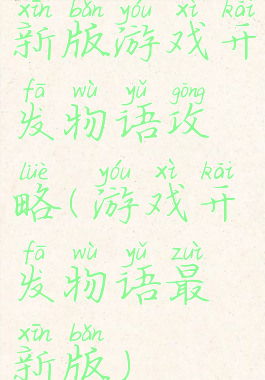 xīn bǎn yóu xì kāi
新版游戏开
fā wù yǔ gōng
发物语攻
lüè yóu xì kāi
略(游戏开
fā wù yǔ zuì
发物语最
xīn bǎn
新版)